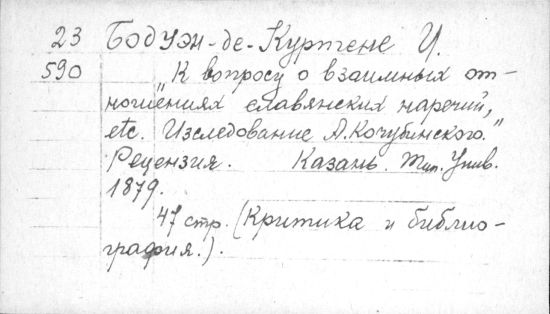 23 Бодуэн-де-Куртене И.
590 "К вопросу о взаимных от-
ношениях славянских наречий,
etc. Изследование А. Кочубинского."
Рецензия. Казань. Тип. Унив.
1879.
47 стр. (Критика и библио-
графия.).